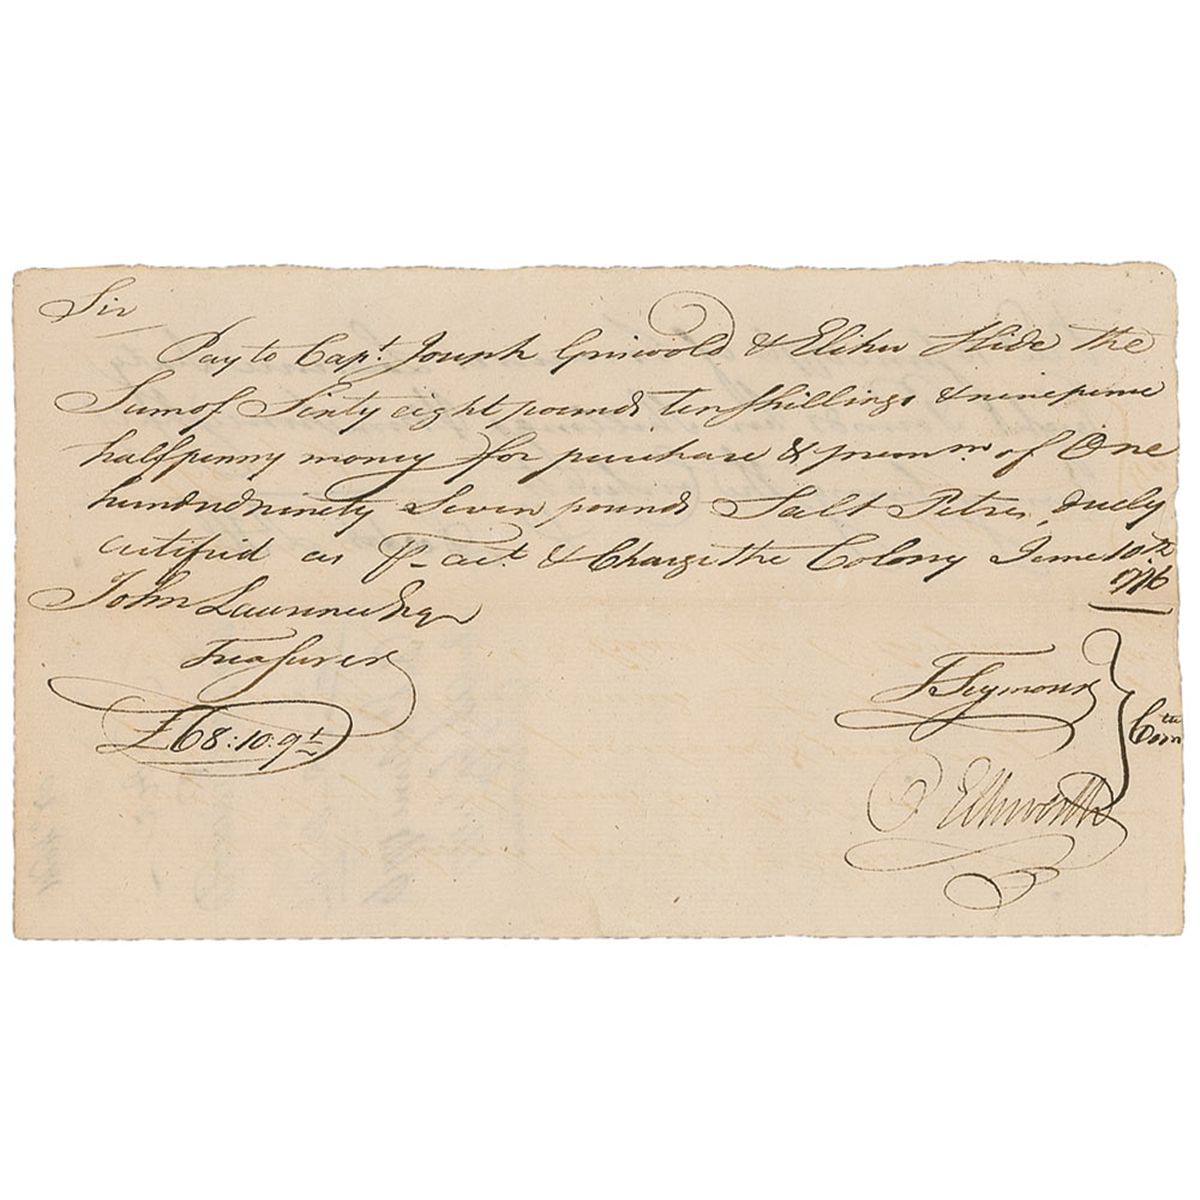 Sir
Pay to Capt. Joseph Griswold & Elihu Hide the
Sum of Sixty eight pounds ten shillings & ninepence
halfpenny money for purchase & premm. of One
hundred ninety Seven pounds Salt Petre, duely
certified as ⅌ acct. & Charge the Colony June 10th
1776
John Lawrence Esqr
Treasurer
£68:10:9½
T Seymour
O Ellsworth
Comtte